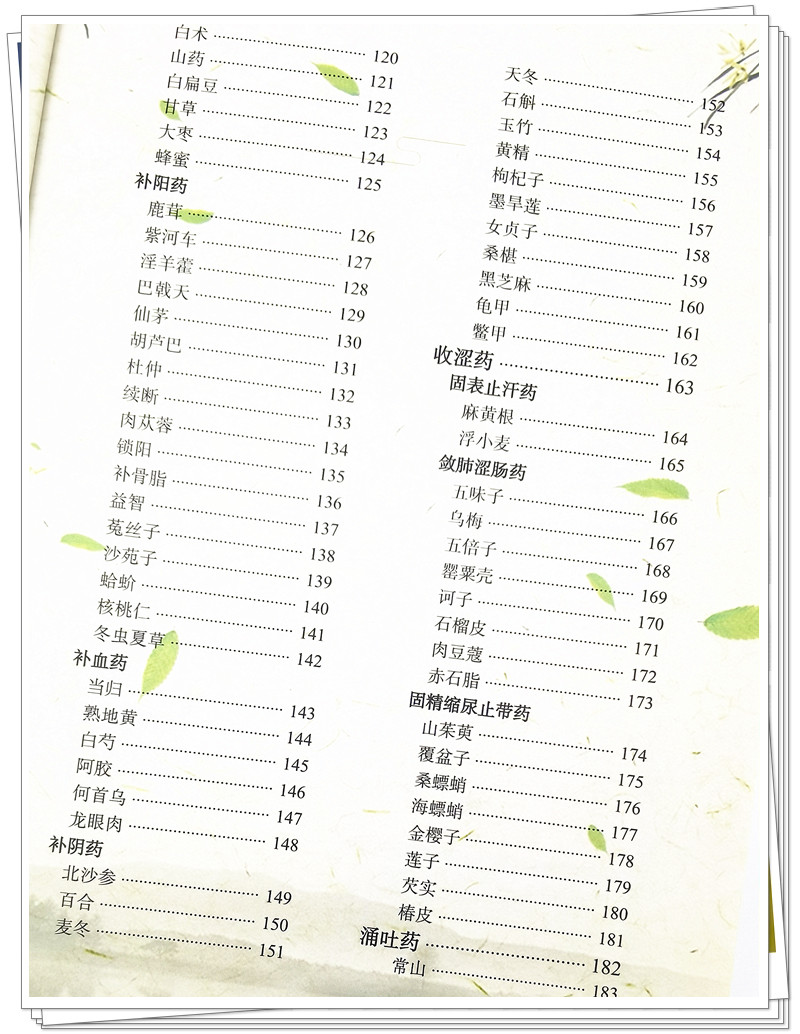 白术 120
山药 121
白扁豆 122
甘草 123
大枣 124
蜂蜜 125
补阳药
鹿茸 126
紫河车 127
淫羊藿 128
巴戟天 129
仙茅 130
胡芦巴 131
杜仲 132
续断 133
肉苁蓉 134
锁阳 135
补骨脂 136
益智 137
菟丝子 138
沙苑子 139
蛤蚧 140
核桃仁 141
冬虫夏草 142
补血药
当归 143
熟地黄 144
白芍 145
阿胶 146
何首乌 147
龙眼肉 148
补阴药
北沙参 149
百合 150
麦冬 151
天冬 152
石斛 153
玉竹 154
黄精 155
枸杞子 156
墨旱莲 157
女贞子 158
桑椹 159
黑芝麻 160
龟甲 161
鳖甲 162
收涩药 163
固表止汗药
麻黄根 164
浮小麦 165
敛肺涩肠药
五味子 166
乌梅 167
五倍子 168
罂粟壳 169
诃子 170
石榴皮 171
肉豆蔻 172
赤石脂 173
固精缩尿止带药
山茱萸 174
覆盆子 175
桑螵蛸 176
海螵蛸 177
金樱子 178
莲子 179
芡实 180
椿皮 181
涌吐药 182
常山 183